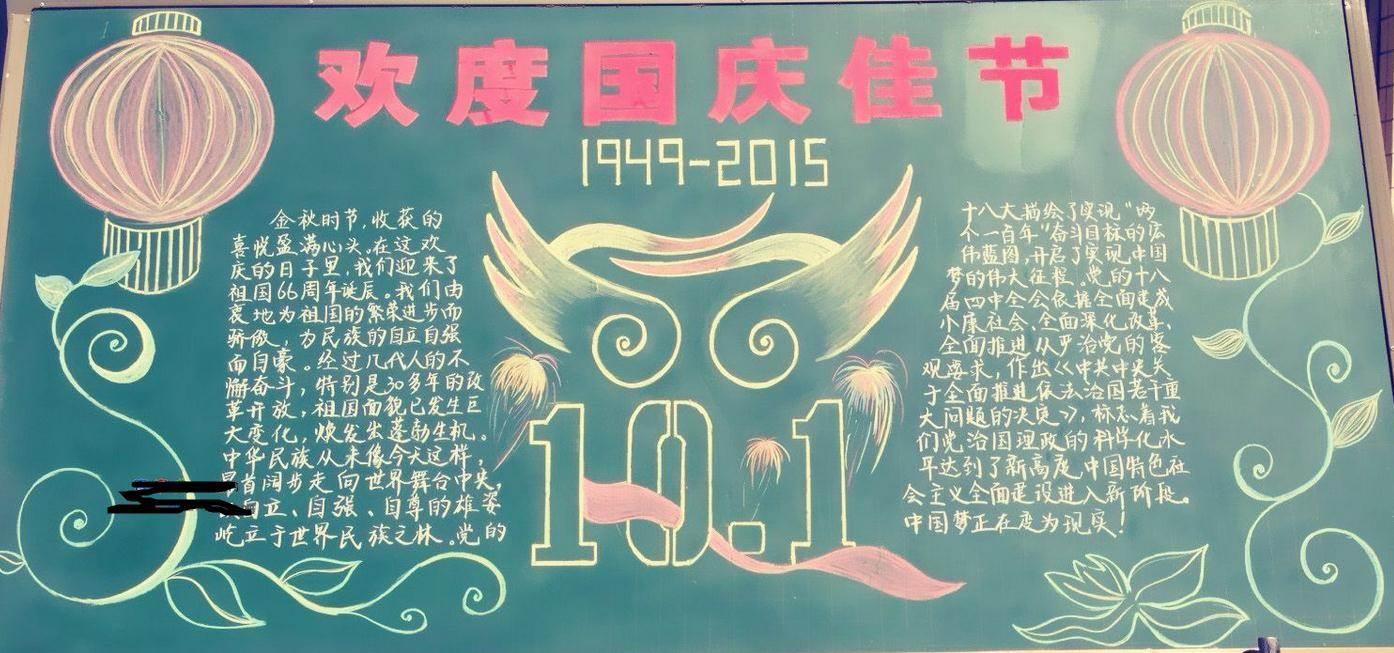 欢度国庆佳节
1949-2015
金秋时节,收获的
喜悦盈满心头。在这欢
庆的日子里,我们迎来了
祖国66周年诞辰。我们由
衷地为祖国的繁荣进步而
骄傲,为民族的自立自强
而自豪。经过几代人的不
懈奋斗,特别是30多年的改
革开放,祖国面貌已发生巨
大变化,焕发出蓬勃生机。
中华民族从来像今天这样,
昂首阔步走向世界舞台中央,
自立、自强、自尊的雄姿
屹立于世界民族之林。党的
10.1
十八大描绘了实现“两
个一百年”奋斗目标的宏
伟蓝图,开启了实现中国
梦的伟大征程。党的十八
届四中全会根据全面建成
小康社会、全面深化改革、
全面推进从严治党的客
观要求,作出《中共中央关
于全面推进依法治国若干重
大问题的决定》,标志着我
们党治国理政的科学化水
平达到了新高度,中国特色社
会主义全面建设进入新阶段。
中国梦正在变为现实!